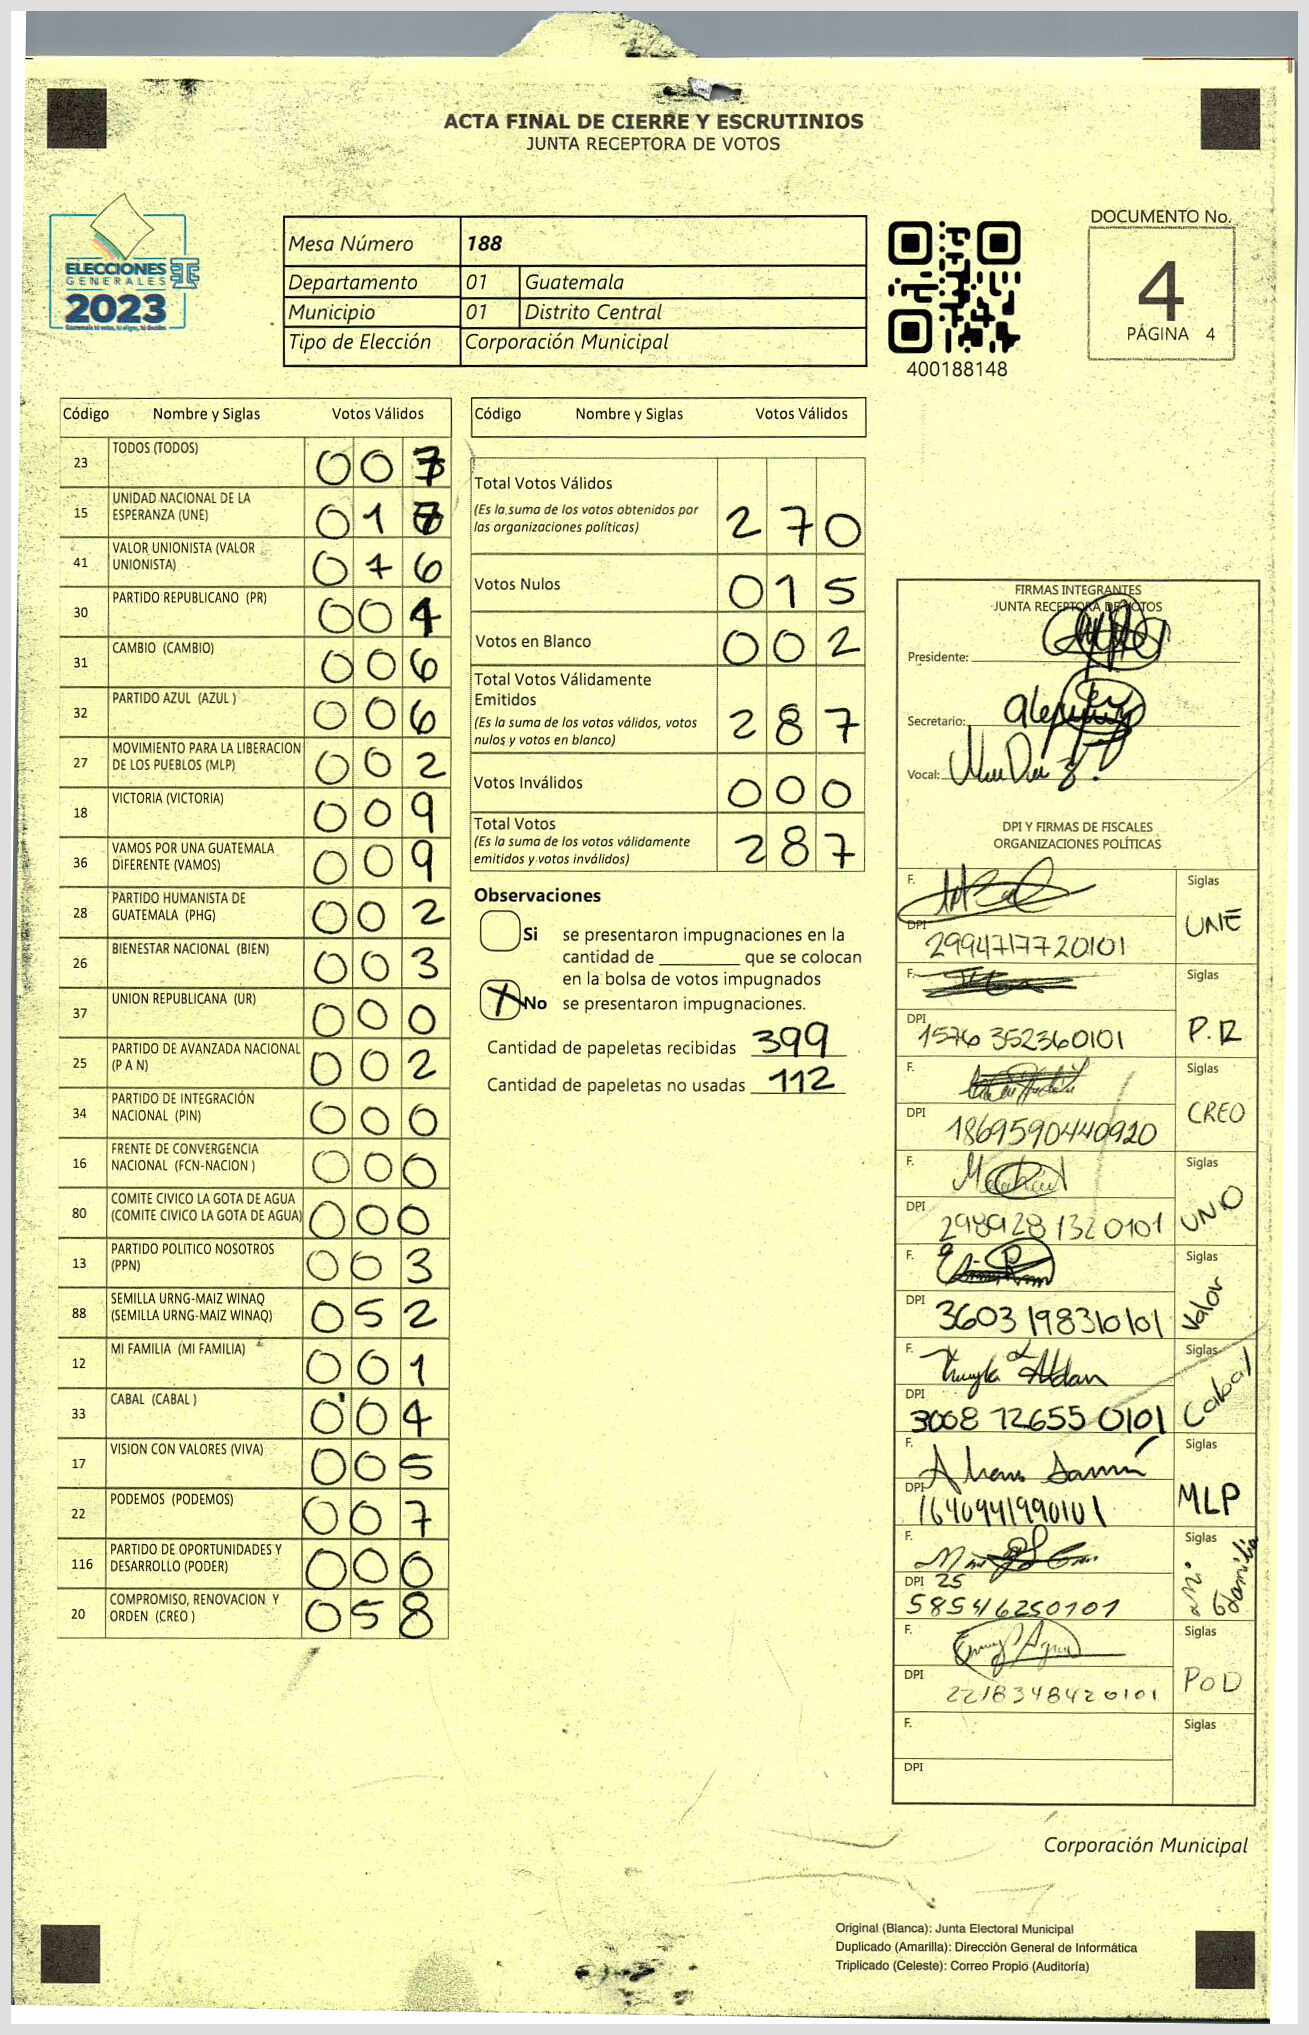 ACTA FINAL DE CIERRE Y ESCRUTINIOS
JUNTA RECEPTORA DE VOTOS
ELECCIONES
GENERALES
2023
Guatemala tú votas, tú eliges, tú decides
Mesa Número 188
Departamento 01 Guatemala
Municipio 01 Distrito Central
Tipo de Elección Corporación Municipal
400188148
DOCUMENTO No.
4
PÁGINA 4
Código Nombre y Siglas Votos Válidos
23 TODOS (TODOS) 007
15 UNIDAD NACIONAL DE LA
ESPERANZA (UNE) 017
41 VALOR UNIONISTA (VALOR
UNIONISTA) 076
30 PARTIDO REPUBLICANO (PR) 004
31 CAMBIO (CAMBIO) 006
32 PARTIDO AZUL (AZUL ) 006
27 MOVIMIENTO PARA LA LIBERACION
DE LOS PUEBLOS (MLP) 002
18 VICTORIA (VICTORIA) 009
36 VAMOS POR UNA GUATEMALA
DIFERENTE (VAMOS) 009
28 PARTIDO HUMANISTA DE
GUATEMALA (PHG) 002
26 BIENESTAR NACIONAL (BIEN) 003
37 UNION REPUBLICANA (UR) 000
25 PARTIDO DE AVANZADA NACIONAL
(P A N) 002
34 PARTIDO DE INTEGRACIÓN
NACIONAL (PIN) 000
16 FRENTE DE CONVERGENCIA
NACIONAL (FCN-NACION ) 000
80 COMITE CIVICO LA GOTA DE AGUA
(COMITE CIVICO LA GOTA DE AGUA) 000
13 PARTIDO POLITICO NOSOTROS
(PPN) 003
88 SEMILLA URNG-MAIZ WINAQ
(SEMILLA URNG-MAIZ WINAQ) 052
12 MI FAMILIA (MI FAMILIA) 001
33 CABAL (CABAL ) 004
17 VISION CON VALORES (VIVA) 005
22 PODEMOS (PODEMOS) 007
116 PARTIDO DE OPORTUNIDADES Y
DESARROLLO (PODER) 000
20 COMPROMISO, RENOVACION Y
ORDEN (CREO ) 058
Código Nombre y Siglas Votos Válidos
Total Votos Válidos
(Es la suma de los votos obtenidos por
las organizaciones políticas) 270
Votos Nulos 015
Votos en Blanco 002
Total Votos Válidamente
Emitidos
(Es la suma de los votos válidos, votos
nulos y votos en blanco) 287
Votos Inválidos 000
Total Votos
(Es la suma de los votos válidamente
emitidos y votos inválidos) 287
Observaciones
Si se presentaron impugnaciones en la
cantidad de ________ que se colocan
en la bolsa de votos impugnados
X No se presentaron impugnaciones.
Cantidad de papeletas recibidas 399
Cantidad de papeletas no usadas 112
FIRMAS INTEGRANTES
JUNTA RECEPTORA DE VOTOS
Presidente:
Secretario:
Vocal:
DPI Y FIRMAS DE FISCALES
ORGANIZACIONES POLÍTICAS
F. Siglas
UNE
DPI 2994717720101
F. Siglas
P.R
DPI 1576 352360101
F. Siglas
CREO
DPI 1869590440920
F. Siglas
UNO
DPI 298928 1320101
F. Siglas
Valor
DPI 3603 198310101
F. Siglas
Cabal
DPI 3008 72655 0101
F. Siglas
MLP
DPI 1640941990101
F. Siglas
Mi Familia
DPI 25
58546250101
F. Siglas
POD
DPI 2218348420101
F. Siglas
DPI
Corporación Municipal
Original (Blanca): Junta Electoral Municipal
Duplicado (Amarilla): Dirección General de Informática
Triplicado (Celeste): Correo Propio (Auditoría)